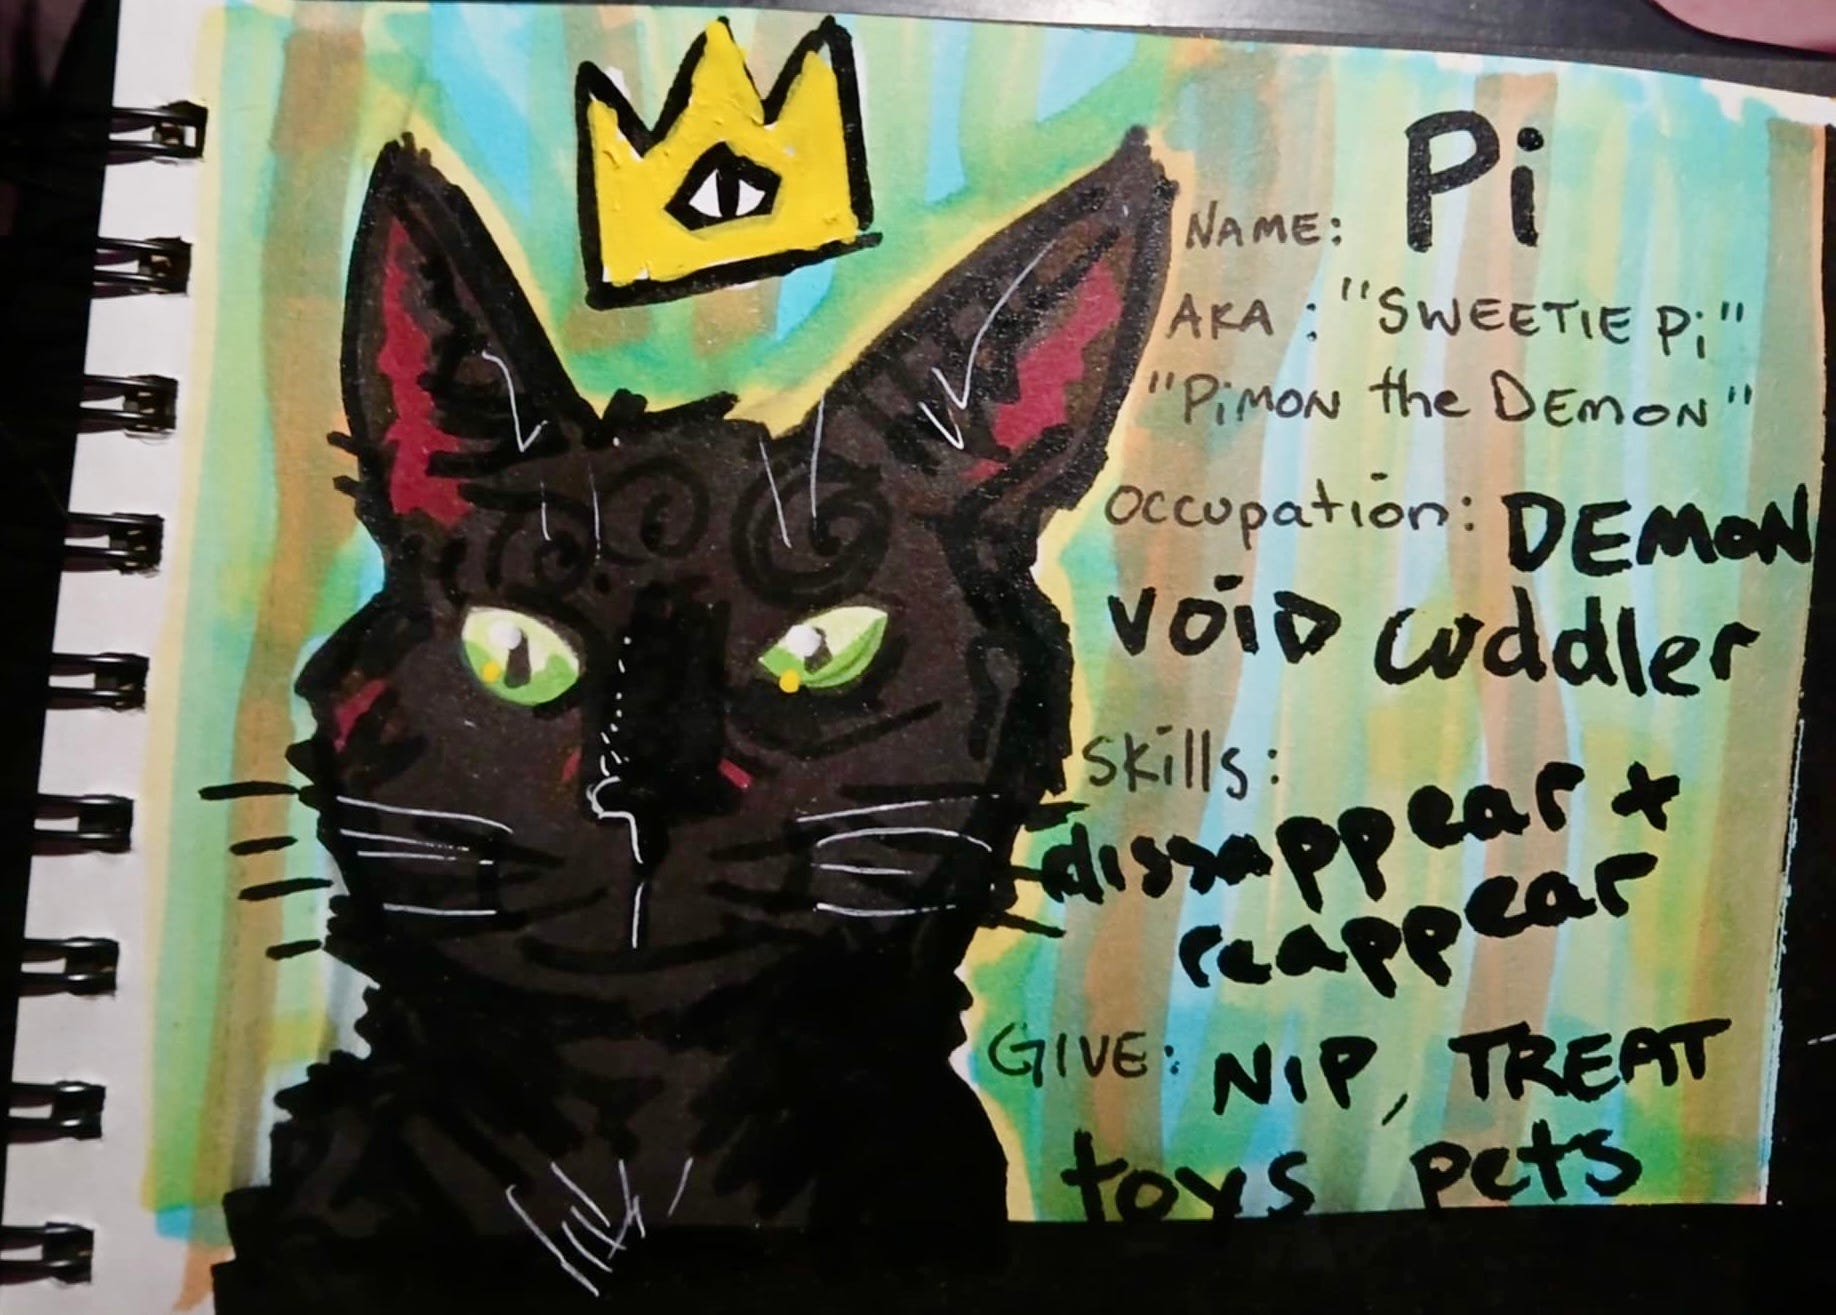 NAME: Pi
AKA: "SWEETIE Pi"
"PiMON the DEMON"
occupation: DEMON
VOID cuddler
skills:
dissappear +
reappear
GIVE: NIP, TREAT
toys pets